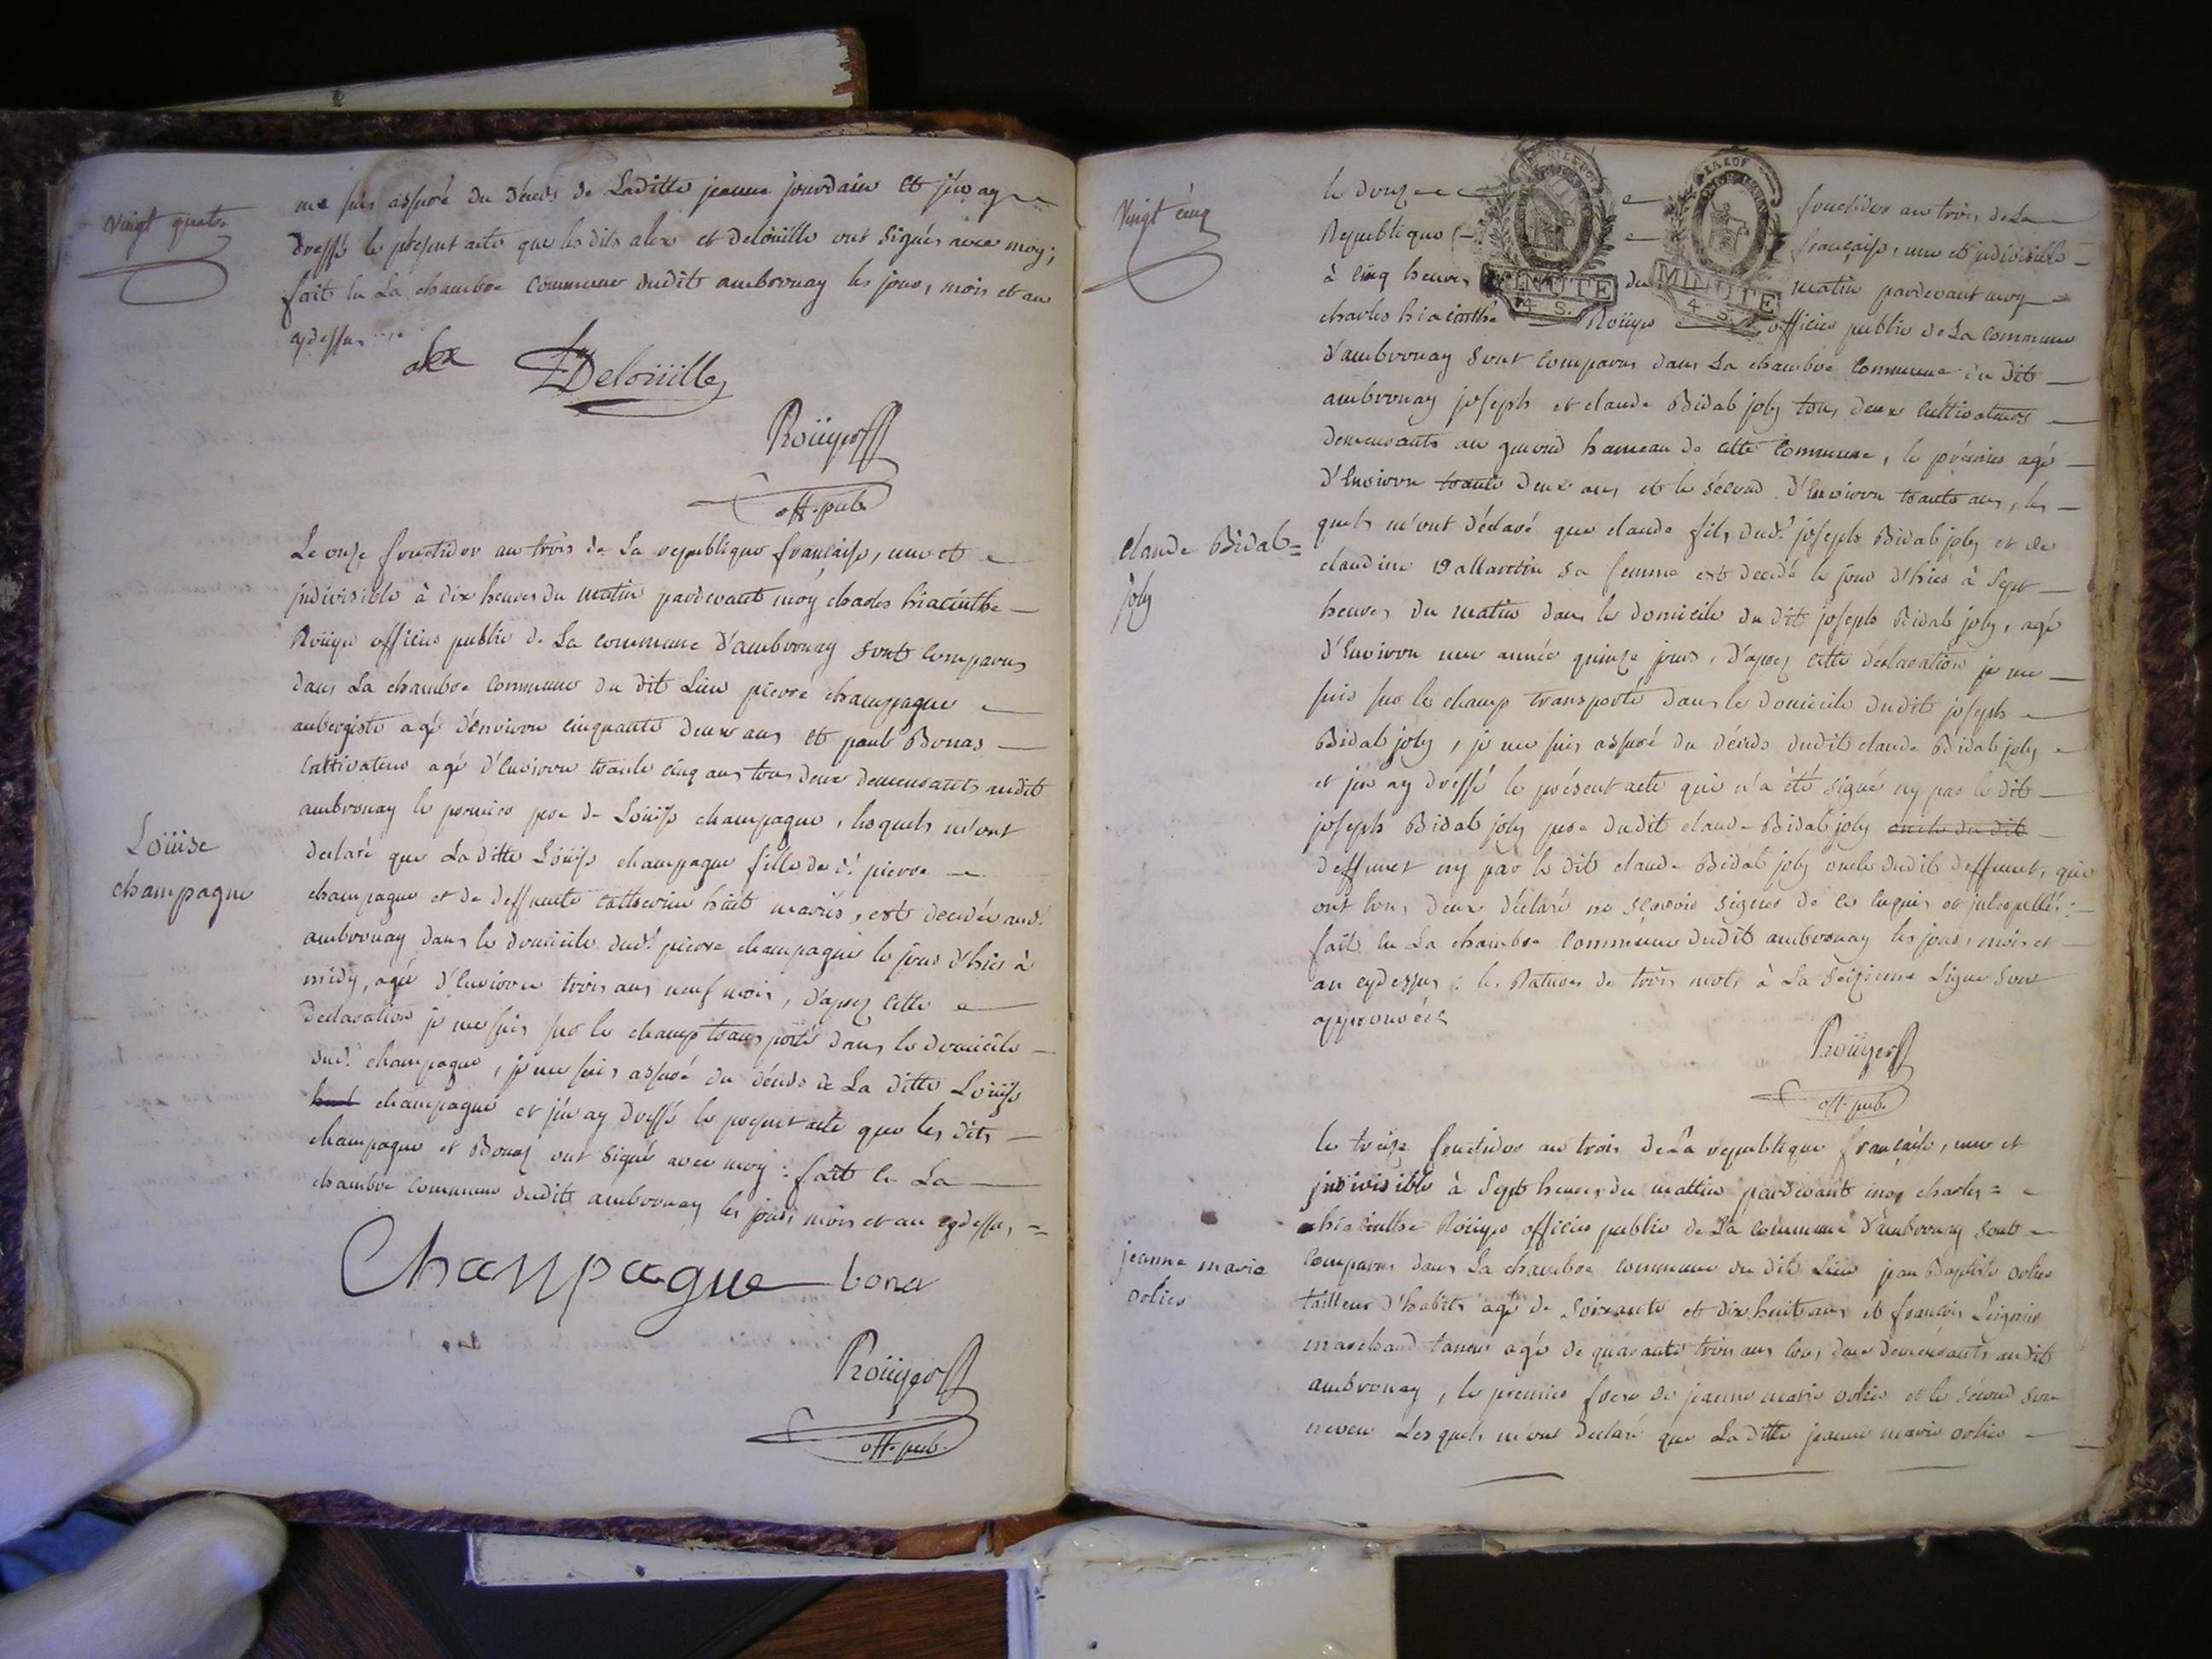 Vingt quatre
me suis assuré du décès de Laditte jeanne jourdain et j'en ay
dressé le présent acte que les dits alex et Deloüille ont signés avec moy;
fait en La chambre commune dudit ambronay les jour, mois et an
cydessus
alex Deloüille
Roüyer
off. pub.
Le onze fructidor an trois de La republique francaise, une et
indivisible à dix heures du matin pardevant moy charles hiacinthe
Roüyer officier public de La commune d'ambronay sont comparus
dans La chambre commune du dit Lieu pierre champagne
aubergiste agé d'environ cinquante deux ans et paul Bonas
cultivateur agé d'environ trante cinq ans tous deux demeurants audit
ambronay le premier pere de Loüise champagne, lesquels m'ont
declaré que La ditte Loüise champagne fille du dt. pierre
Loüise
champagne
champagne et de deffunte catherine mariés, est decédée aud.
ambronay dans le domicile dud. pierre champagne le jour d'hier à
midy, agée d'environ trois ans neuf mois, d'après cette
declaration je me suis sur le champ transporté dans le domicile
dud. champagne, je me suis assuré du décès de La ditte Loüise
champagne et j'en ay dressé le présent acte que les dits
champagne et Bonas ont signé avec moy : fait en La
chambre commune dudit ambronay les jour, mois et an cydessus
Champagne bona
Roüyer
off. pub.
Vingt cinq
le douze fructidor an trois de La
Republique française, une et indivisible
à cinq heures du matin pardevant moy
MINUTE MINUTE
4 S. 4 S.
charles hiacinthe Roüyer officier public de La commune
d'ambronay sont comparus dans La chambre commune du dit
ambronay joseph et claude Bidal joly tous deux cultivateurs
demeurants au hameau de cette commune, le premier agé
d'environ trante deux ans et le sécond d'environ trante ans, les
quels m'ont déclaré que claude fils dud. joseph Bidal joly et de
claude Bidal=
joly
claudine sa femme est decedé le jour d'hier à sept
heures du matin dans le domicile du dit joseph Bidal joly, agé
d'environ une année quinze jours, d'après cette déclaration je me
suis sur le champ transporté dans le domicile dudit joseph
Bidal joly, je me suis assuré du décès dudit claude Bidal joly
et j'en ay dressé le présent acte qui n'a été signé ny par le dit
joseph Bidal joly pere dudit claude Bidal joly oncle du dit
deffunct ny par le dit claude Bidal joly oncle dudit deffunct, qui
ont tous deux déclaré ne scavoir signer de ce enquis et interpellés :
fait en La chambre commune dudit ambronay les jour, mois et
an cydessus : les Ratures de trois mots à La seizieme Ligne sont
approuvées
Roüyer
off. pub.
le treize fructidor an trois de La republique française, une et
indivisible à sept heures du mattin pardevant moy charles=
hiacinthe Roüyer officier public de La commune d'ambronay sont
comparus dans La chambre commune du dit Lieu jean Baptiste orlier
jeanne marie
orlier
tailleur d'habits agé de soixante et dix huit ans et françois
marchand taneur agé de quarante trois ans tous deux demeurants audit
ambronay, le premier frere de jeanne marie orlier et le sécond son
neveu Lesquels m'ont declaré que La ditte jeanne marie orlier